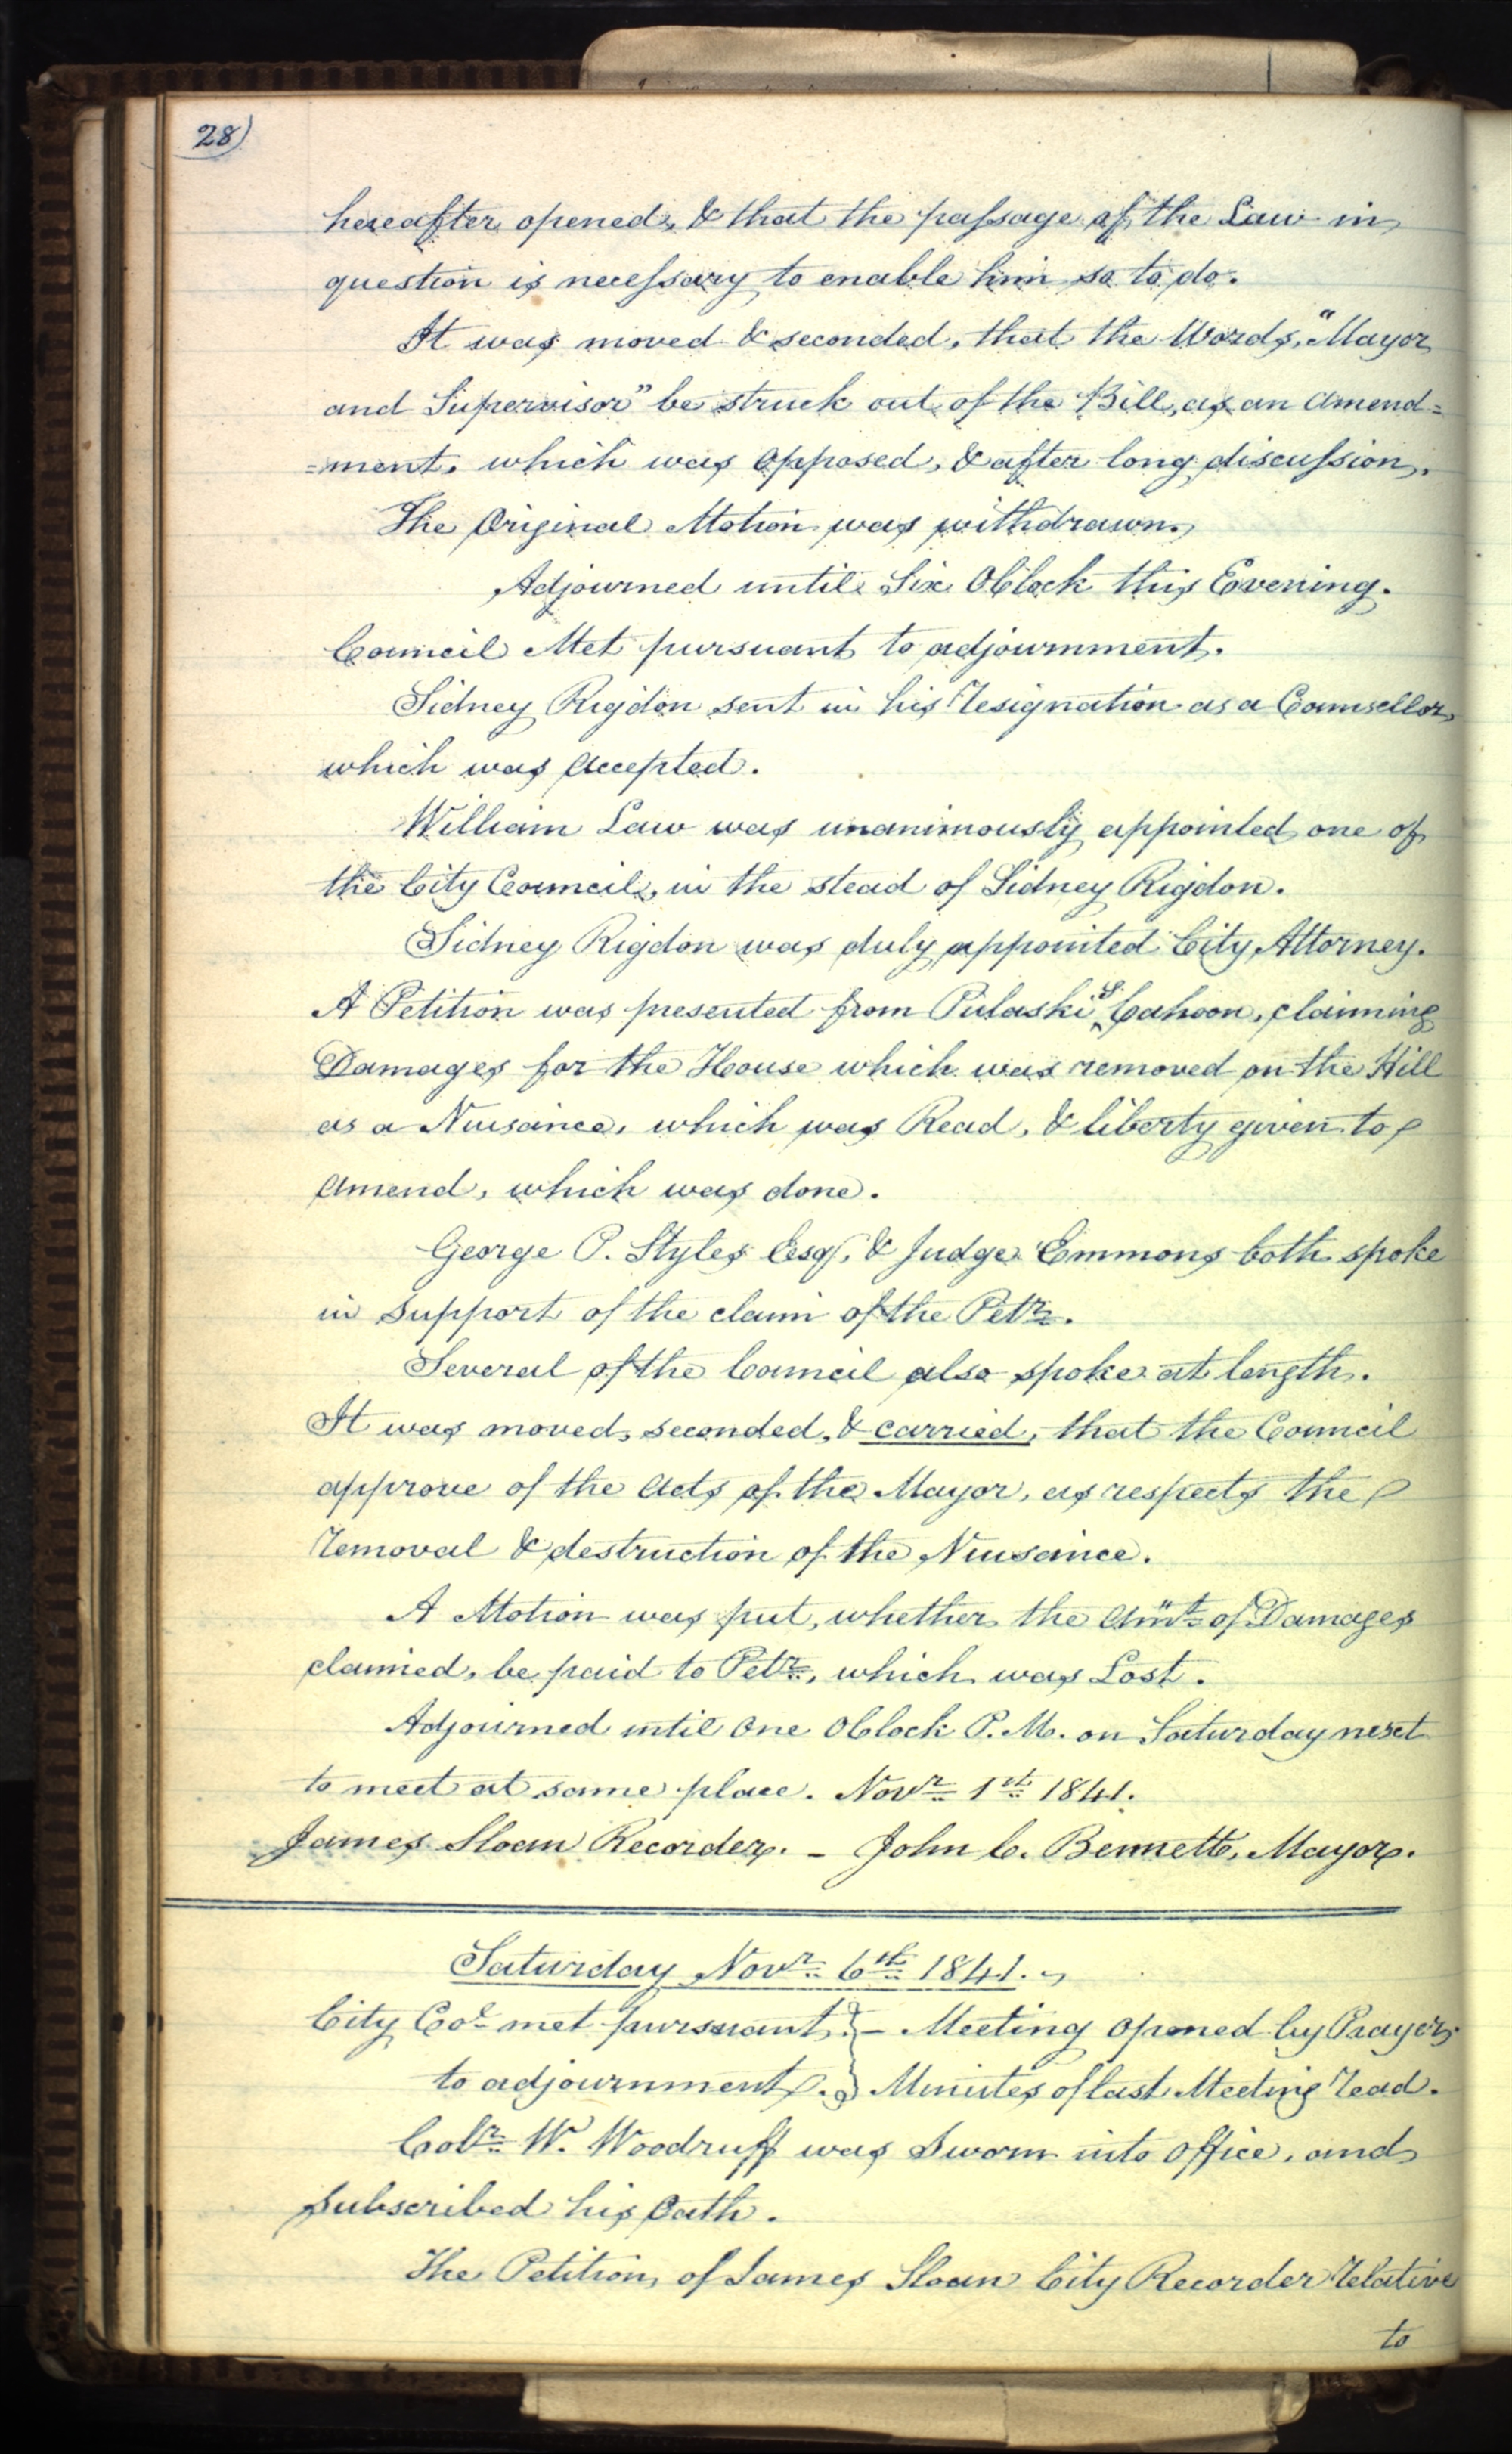 28)
hereafter opened, & that the passage of the Law in
question is necessary to enable him so to do.
It was moved & seconded, that the Words, "Mayor
and Supervisor" be struck out of the Bill, as an Amend=
=ment, which was opposed, & after long discussion,
The Original Motion was withdrawn,
Adjourned until Six OClock this Evening.
Council Met pursuant to adjournment.
Sidney Rigdon sent in his resignation as a Counsellor,
which was accepted.
William Law was unanimously appointed one of
the City Council, in the stead of Sidney Rigdon.
Sidney Rigdon was duly appointed City Attorney.
A Petition was presented from Pulaski S. Cahoon, claiming
Damages for the House which was removed on the Hill
as a Nuisance, which was Read, & liberty given to
amend, which was done.
George P. Styles Esqr. & Judge Emmons both spoke
in support of the claim of the Petr.
Several of the Council also spoke at length.
It was moved, seconded, & carried, that the Council
approve of the Acts of the Mayor, as respects the
removal & destruction of the Nuisance.
A Motion was put, whether the Amt of Damages
claimed, be paid to Petr., which was Lost.
Adjourned until One OClock P. M. on Saturday next
to meet at same place. Novr 1st 1841.
James Sloan Recorder. – John C. Bennett, Mayor.
Saturday Novr 6th 1841.
City Col met pursuant } – Meeting opened by Prayer,
to adjournment. } Minutes of last Meeting read.
Colr W. Woodruff was Sworn into office, and
subscribed his Oath.
The Petition, of James Sloan City Recorder relative
to